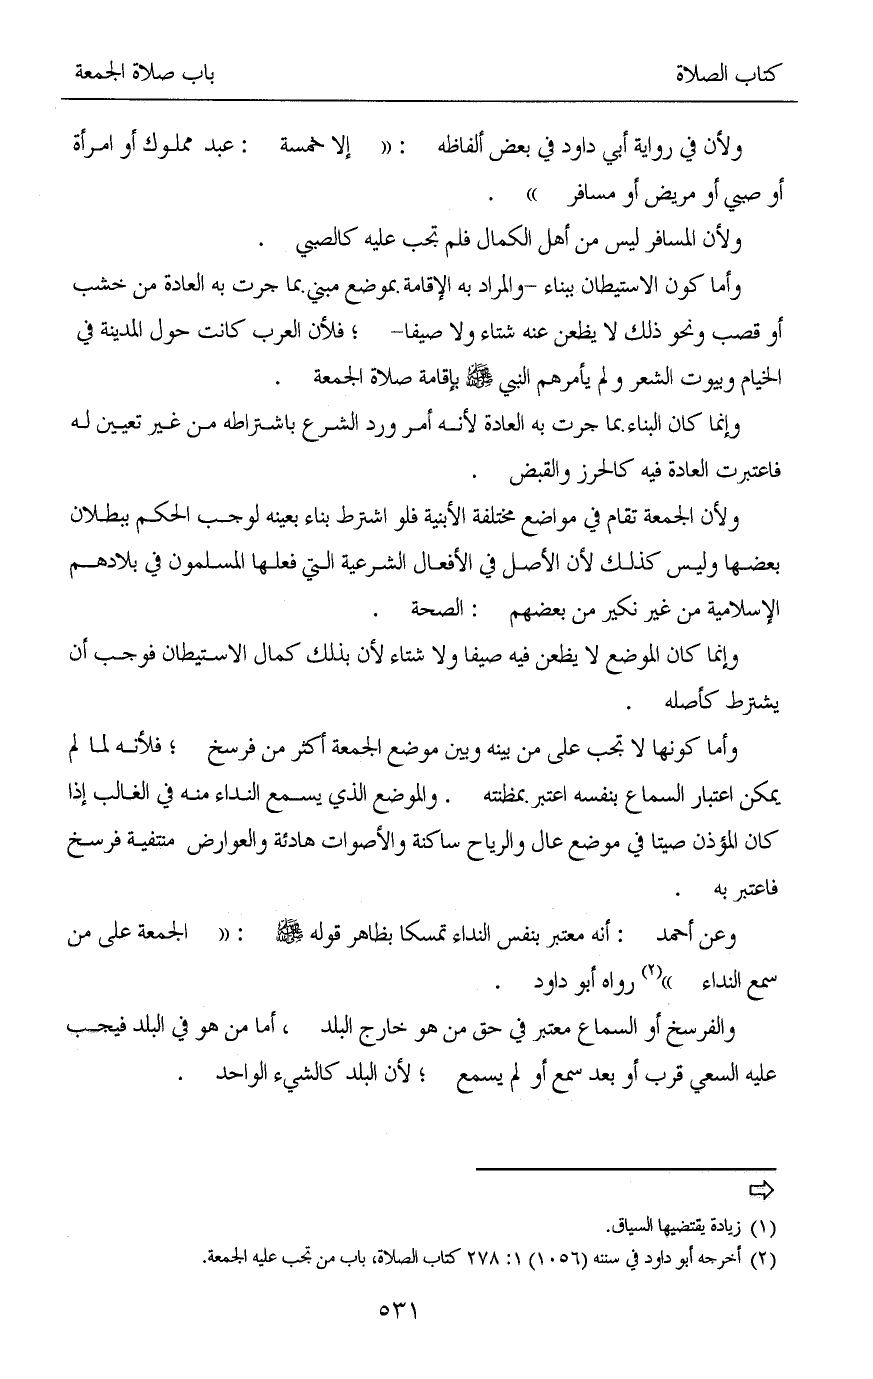 كتاب الصلاة باب صلاة الجمعة
ولأن في رواية أبي داود في بعض ألفاظه : (( إلا خمسة : عبد مملوك أو امرأة
أو صبي أو مريض أو مسافر )) .
ولأن المسافر ليس من أهل الكمال فلم تجب عليه كالصبي .
وأما كون الاستيطان ببناء -والمراد به الإقامة بموضع مبني بما جرت به العادة من خشب
أو قصب ونحو ذلك لا يظعن عنه شتاء ولا صيفا- ؛ فلأن العرب كانت حول المدينة في
الخيام وبيوت الشعر و لم يأمرهم النبي ﷺ بإقامة صلاة الجمعة .
وإنما كان البناء بما جرت به العادة لأنه أمر ورد الشرع باشتراطه من غير تعيين له
فاعتبرت العادة فيه كالحرز والقبض .
ولأن الجمعة تقام في مواضع مختلفة الأبنية فلو اشترط بناء بعينه لوجب الحكم ببطلان
بعضها وليس كذلك لأن الأصل في الأفعال الشرعية التي فعلها المسلمون في بلادهم
الإسلامية من غير نكير من بعضهم : الصحة .
وإنما كان الموضع لا يظعن فيه صيفا ولا شتاء لأن بذلك كمال الاستيطان فوجب أن
يشترط كأصله .
وأما كونها لا تجب على من بينه وبين موضع الجمعة أكثر من فرسخ ؛ فلأنه لما لم
يمكن اعتبار السماع بنفسه اعتبر بمظنته . والموضع الذي يسمع النداء منه في الغالب إذا
كان المؤذن صيتا في موضع عال والرياح ساكنة والأصوات هادئة والعوارض منتفية فرسخ
فاعتبر به .
وعن أحمد : أنه معتبر بنفس النداء تمسكا بظاهر قوله ﷺ : (( الجمعة على من
سمع النداء ))(٢) رواه أبو داود .
والفرسخ أو السماع معتبر في حق من هو خارج البلد ، أما من هو في البلد فيجب
عليه السعي قرب أو بعد سمع أو لم يسمع ؛ لأن البلد كالشيء الواحد .
⇨
(١) زيادة يقتضيها السياق.
(٢) أخرجه أبو داود في سننه (١٠٥٦) ١: ٢٧٨ كتاب الصلاة، باب من تجب عليه الجمعة.
٥٣١